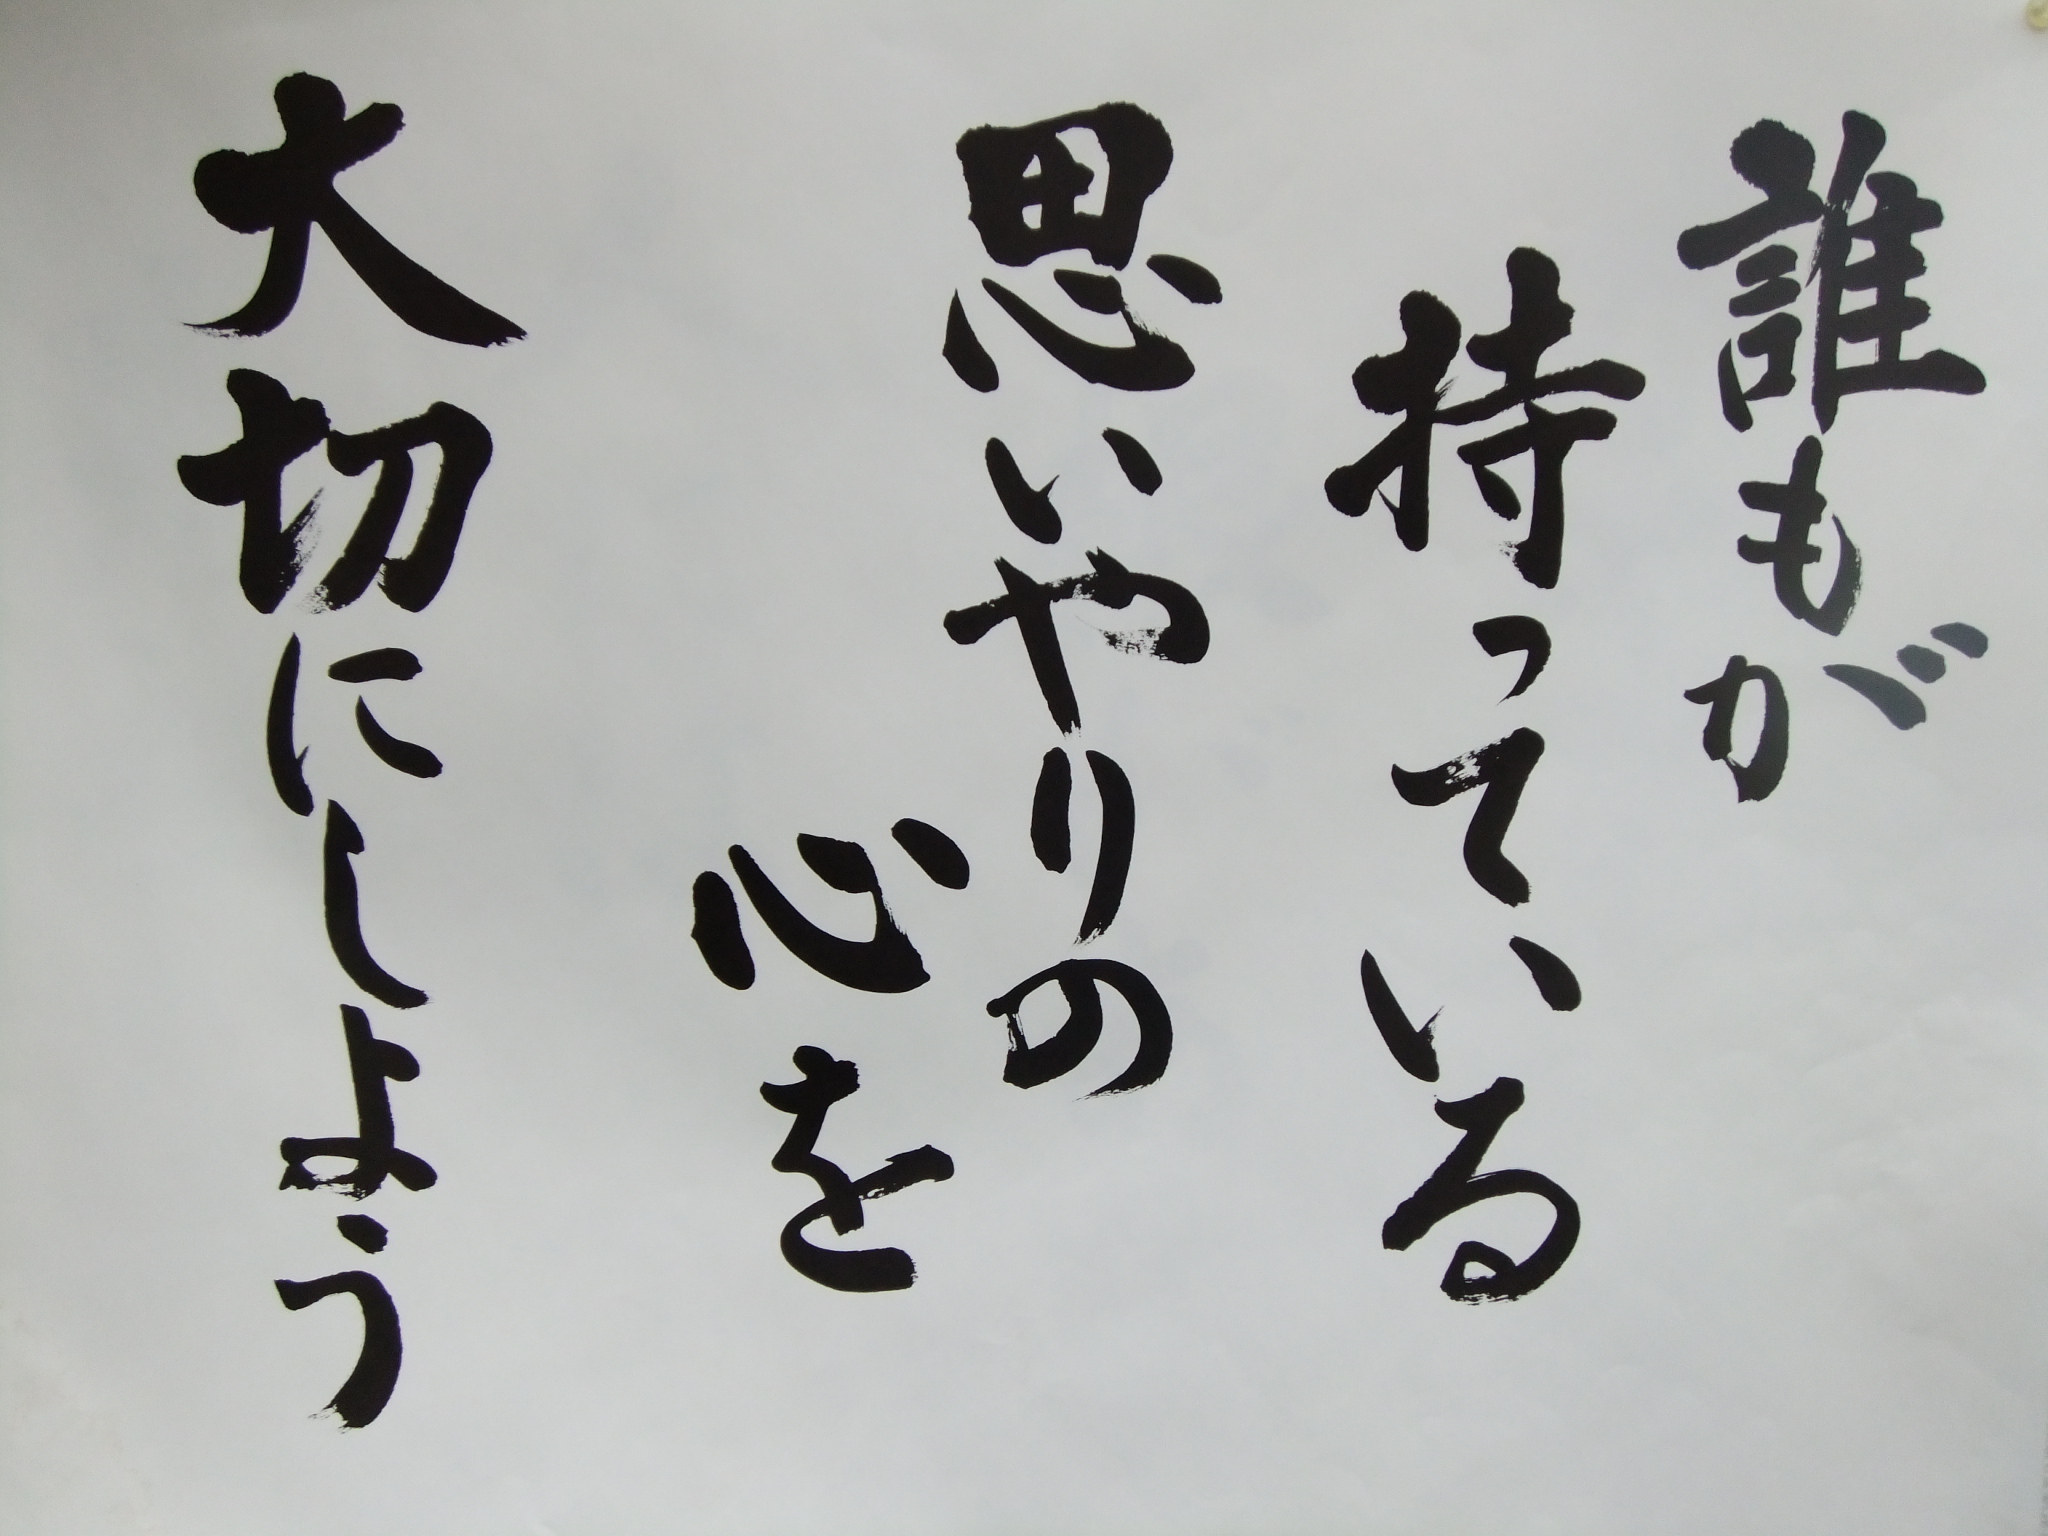 誰もが
持っている
思いやりの
心を
大切にしよう